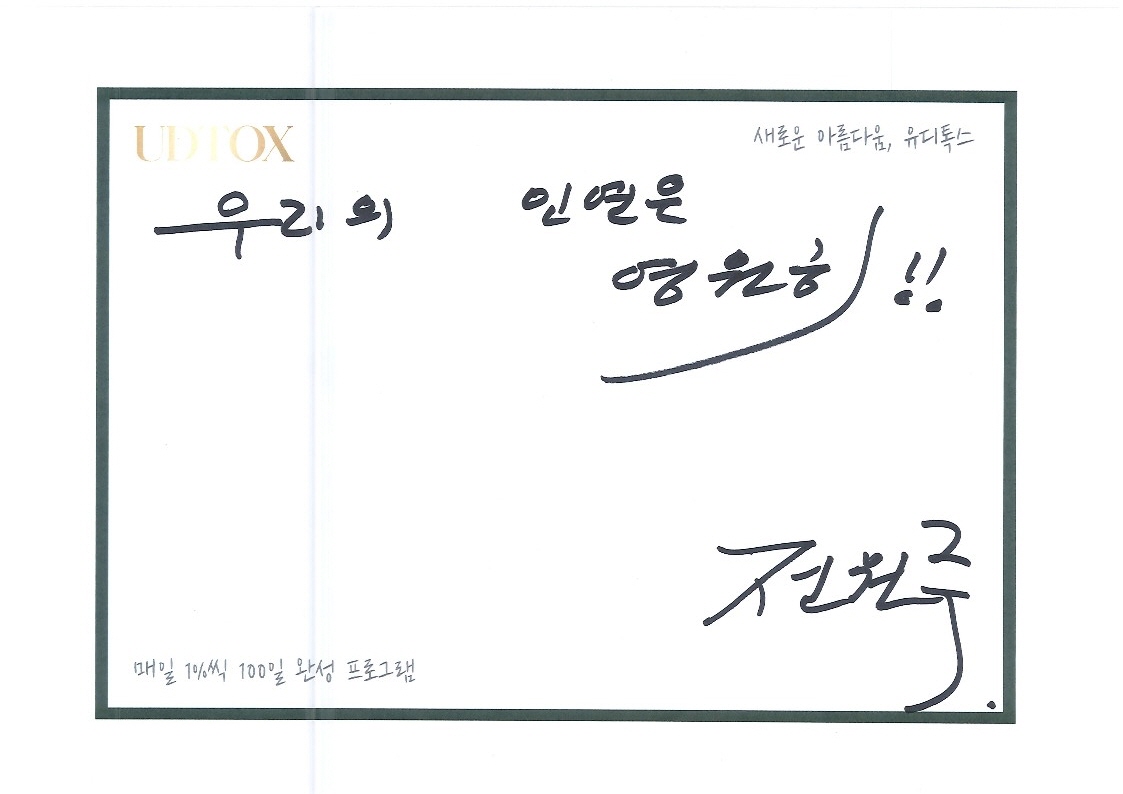 UDTOX
새로운 아름다움, 유디톡스
우리의 인연은
영원히!!
전원주.
매일 1%씩 100일 완성 프로그램